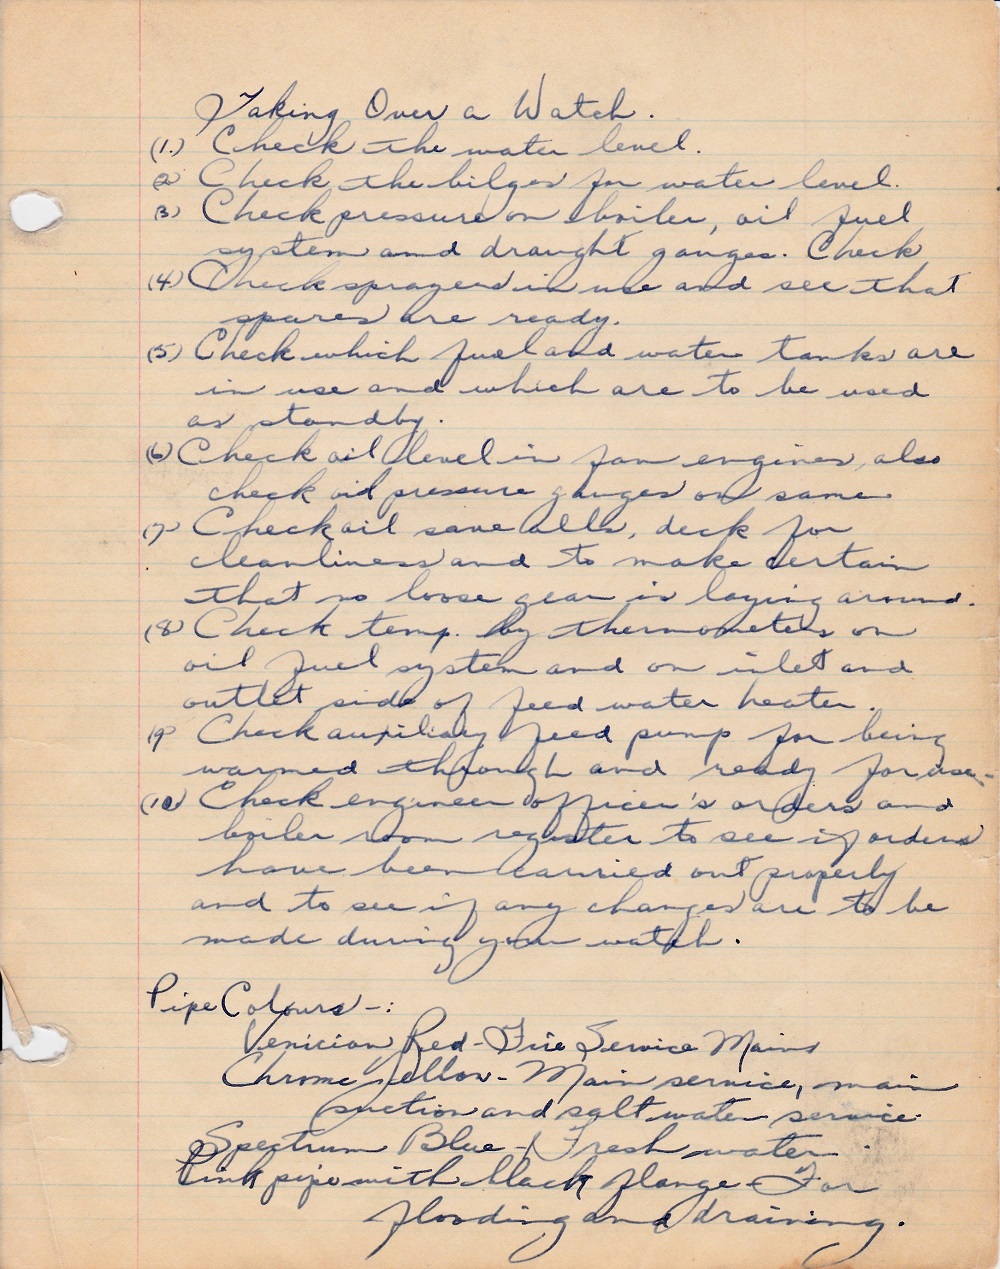 Taking Over a Watch.
(1.) Check the water level.
(2) Check the bilges for water level.
(3) Check pressure on boiler, oil fuel
system and draught gauges. Check
(4) Check sprayers in use and see that
spares are ready.
(5) Check which fuel and water tanks are
in use and which are to be used
as standby.
(6) Check oil level in fan engines, also
check oil pressure gauges on same
(7) Check oil save alls, deck for
cleanliness and to make certain
that no loose gear is laying around.
(8) Check temp. by thermometers on
oil fuel system and on inlet and
outlet side of feed water heater.
(9) Check auxiliary feed pump for being
warmed through and ready for use.
(10) Check engineer officer's orders and
boiler room register to see if orders
have been carried out properly
and to see if any changes are to be
made during your watch.
Pipe Colours-:
Venician Red-Fire Service Mains
Chrome Yellow-Main service, main
suction and salt water service.
Spectrum Blue-Fresh water
Pink pipe with black flange-For
flooding and draining.